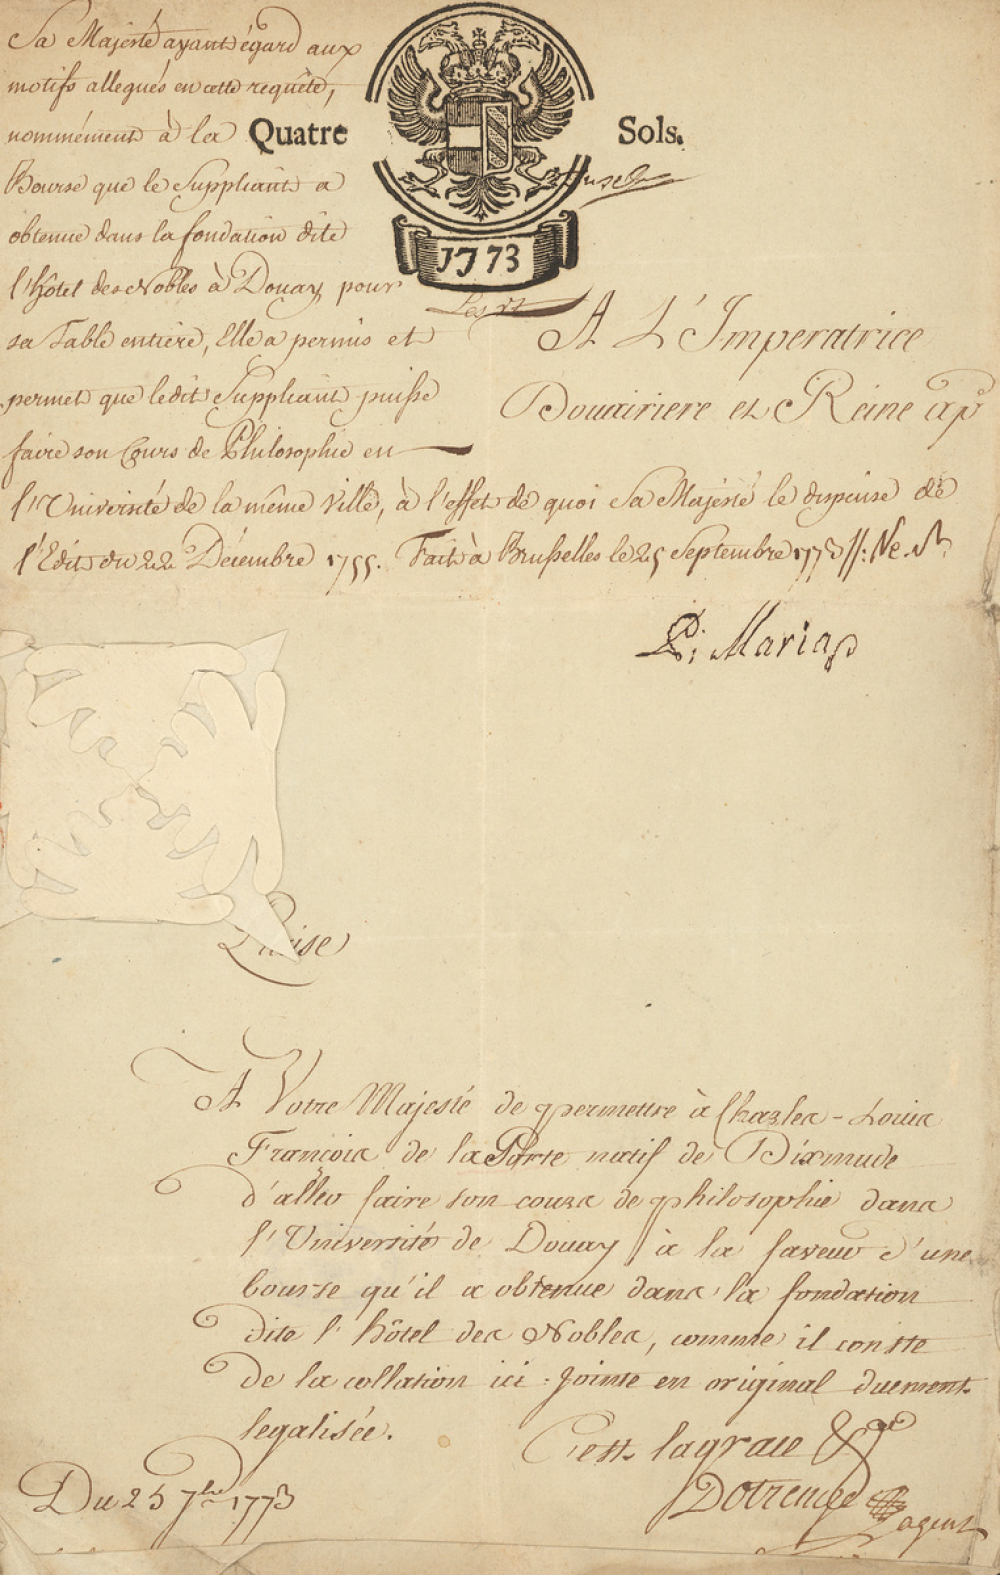 Sa Majesté ayant égard aux
motifs allegués en cette requête,
nommément à la
Bourse que le Suppliant a
obtenue dans la fondation dite
l'hôtel des Nobles à Douay pour
sa Table entiere, Elle a permis et
permet que ledit Suppliant puisse
faire son Cours de Philosophie en
l'Université de la même Ville, à l'effet de quoi Sa Majesté le dispense de
l'Edit du 22 Décembre 1755. Fait à Brusselles le 25 Septembre 1773
Quatre Sols.
1773
A L'Imperatrice
Douairiere et Reine ap
Maria
A Votre Majesté de permettre à Charles-Louis
François de la Porte natif de Dixmude
d'aller faire son cours de philosophie dans
l'Université de Douay à la faveur d'une
bourse qu'il a obtenue dans la fondation
dite l'hôtel des Nobles, comme il conste
de la collation ici-jointe en original duement
legalisée.
C'est la grace &c
Dotrenge
agent
Du 25 7bre 1773